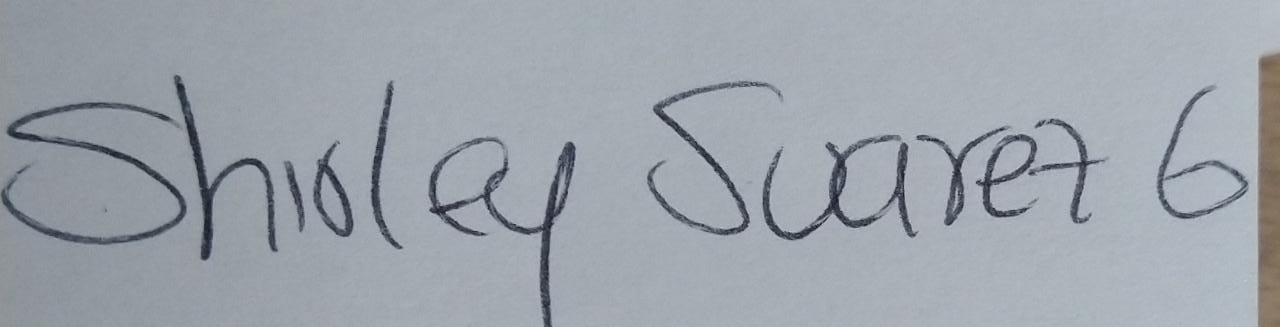 Shirley Suarez G